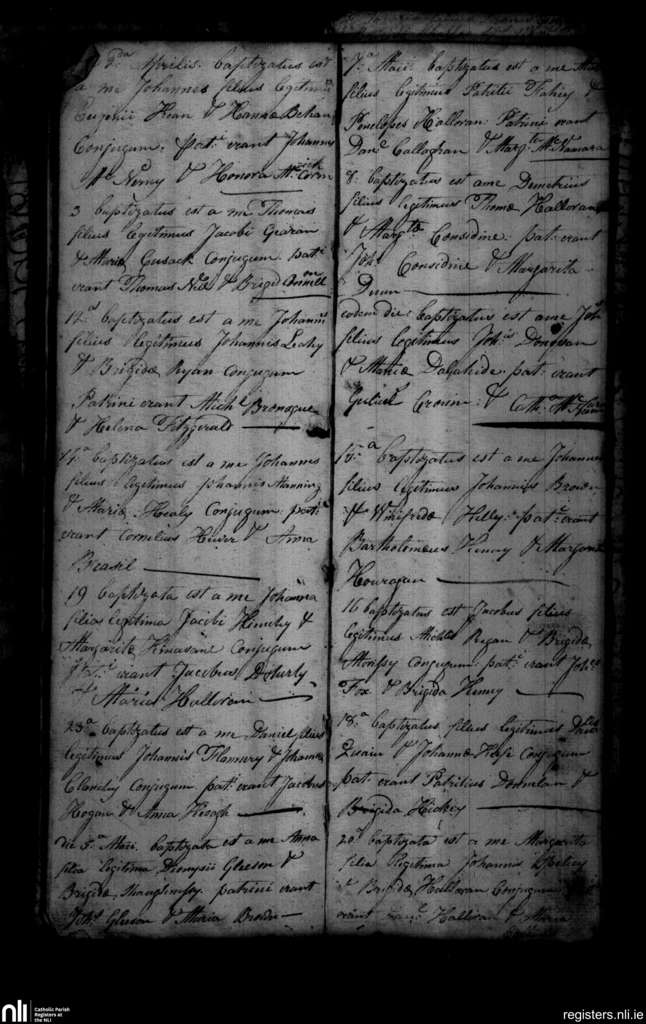 Aprilis. baptizatus est
a me Johannes filius legitimus
Eugenii Hean & Hannæ Behan
Conjugum. pat: erant Johannes
Mc Nerny & Honora Mc
3 baptizatus est a me Thomas
filius legitimus Jacobi Gearan
& Mariæ Cusack Conjugum. pat:
erant Thomas Neil & Brigid Connell
12a baptizatus est a me Johannis
filius legitimus Johannis Leahy
& Brigidæ Ryan Conjugum
Patrini erant Michl Bronogue
& Helena Fitzgerald
baptizatus est a me Johannes
filius legitimus Johannis Manning
& Mariæ Healy Conjugum. pat:
erant Cornelius & Anna
Brasil
19 baptizata est a me Johanna
filia legitima Jacobi Henchy &
Margaritæ Kinasane Conjugum
erant Jacobus Doherty
Maria Halloran
23a baptizatus est a me Daniel filius
legitimus Johannis Flannery & Johannæ
Clanchy Conjugum pat: erant Jacobus
Hogan & Anna Keogh
die 5a Maii. baptizata est a me Anna
filia legitima Dionysii Gleeson &
Brigidæ Shaughnesy. patrini erant
Johs Gleeson & Maria Brown
7a Maii. baptizatus est a me
filius legitimus Patritii Fahey &
Penelopes Halloran. Patrini erant
Danl Callaghan & Margta McNamara
8. baptizatus est a me Demetrius
filius legitimus Thomæ Halloran
& Margtæ Considine. pat: erant
Joh: Considine & Margarita
Dunn
eodem die. baptizatus est a me Joh
filius legitimus Johis Donovan
& Mariæ Dalahide. pat: erant
Guliel Cronin. &
15.a baptizatus est a me Johannes
filius legitimus Johannis Brown
& Winifredæ Hilly. pat: erant
Bartholomeus Henry & Margarita
Houragan
16 baptizatus est Jacobus filius
legitimus Michls Ryan & Brigidæ
Morrissy Conjugum. pat: erant Johs
Fox & Brigida Henry
18.a baptizatus filius legitimus
Quain & Johannæ Conjugum
pat: erant Patritius Donnelan &
Brigida Hickey
20a baptizata est a me Margarita
filia legitima Johannis
& Brigidæ Halloran Conjugum
erant Halloran & Maria
nli
Catholic Parish
Registers at
the NLI
registers.nli.ie